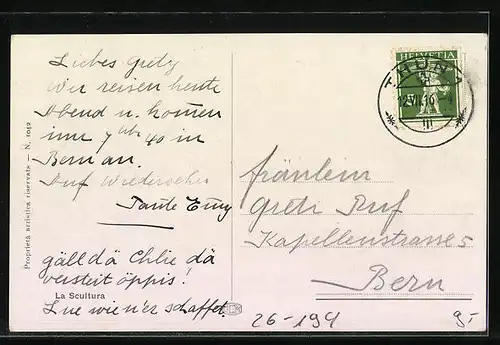 Liebes Gretz
Wir reisen heute
Abend u. kommen
um 7 Uhr 40 in
Bern an.
Auf Wiedersehen
Tante Emy
gäll dä Chlie dä
versteit öppis!
La Scultura
Lue wien'er schaffet.
Proprietà artistica riservata — N. 1042
HELVETIA
THUN 1
12.VII.16
III
Fräulein
Greti Ruf
Kapellenstrasse 5
Bern
26-194
9-